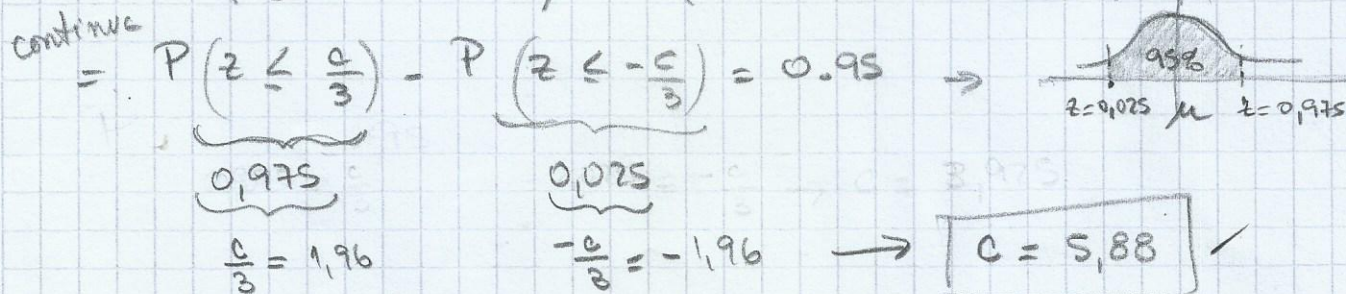 continua
= P(z ≤ c/3) - P(z ≤ -c/3) = 0.95 →
95%
z=0,025 μ z=0,975
0,975 0,025
c/3 = 1,96 -c/3 = -1,96 → C = 5,88 ✓